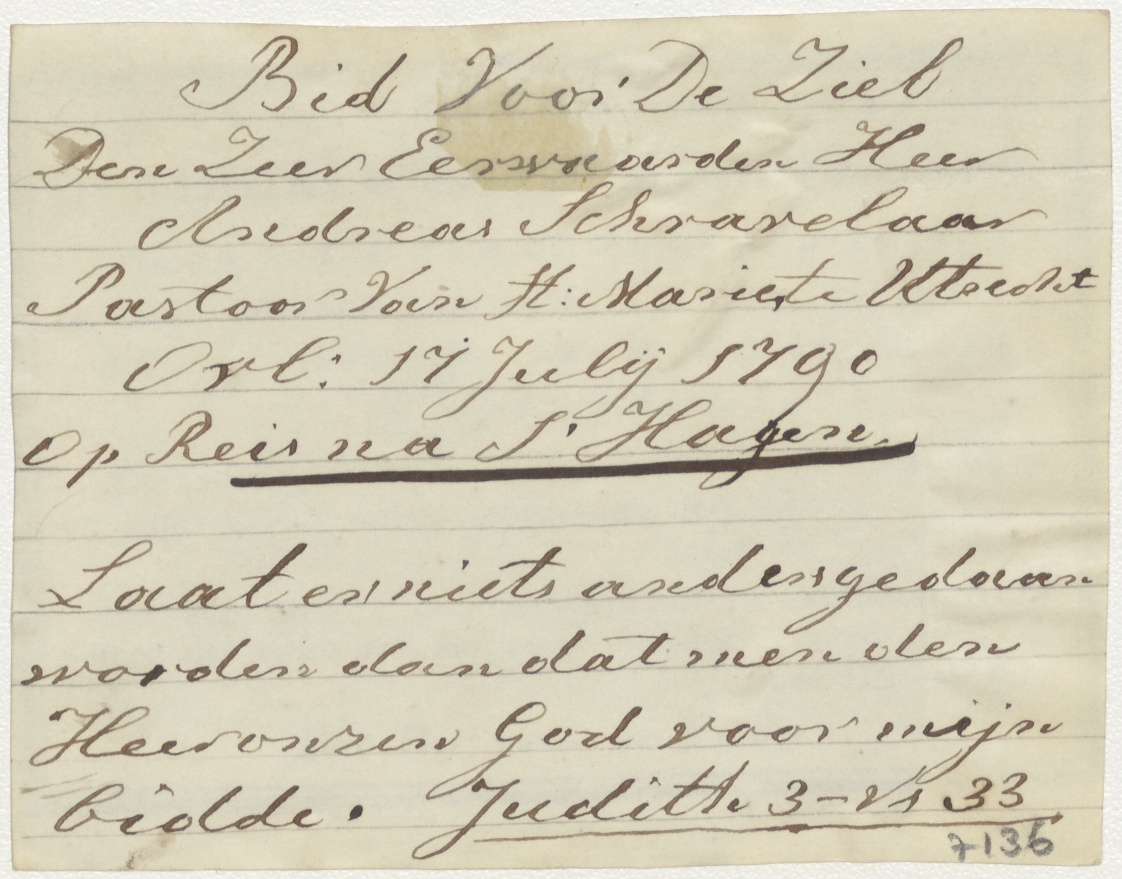 Bid Voor De Ziel
Den Zeer Eerwaarden Heer
Andreas Schravelaar
Pastoor Van H: Marie te Utrecht
Ovl: 17 Julij 1790
op Reis na S' Hagen
Laat er niets anders gedaan
worden dan dat men den
Heer onzen God voor mijn
bidde. Judith 3-Vs 33
7136